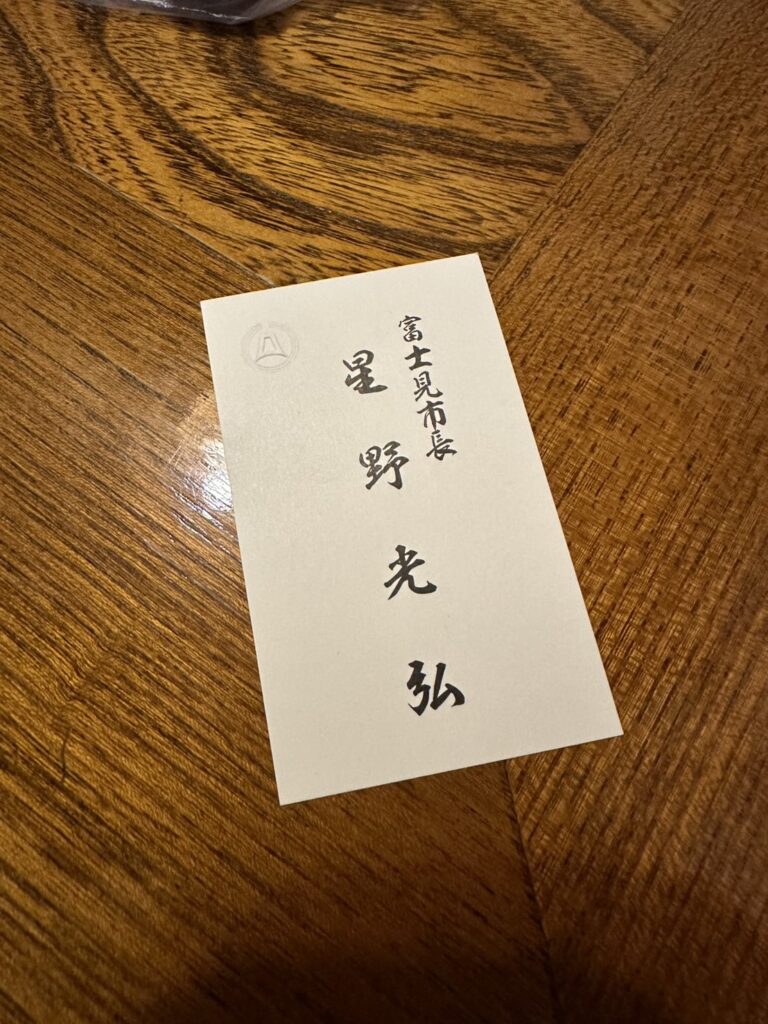 富士見市長
星野光弘